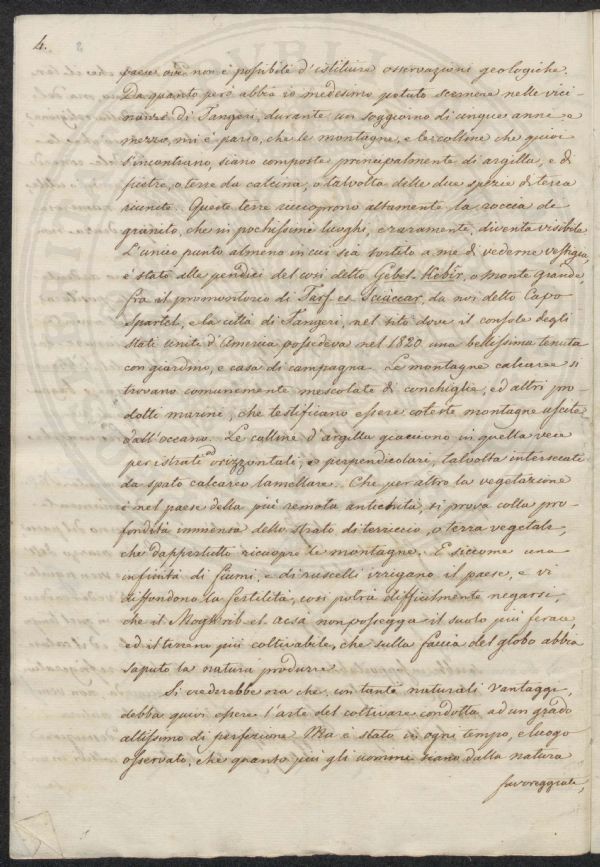 4.
paese ove non è possibile d'istituire osservazioni geologiche.
Da quanto però abbia io medesimo potuto scernere nelle vici-
nanze di Tangeri, durante un soggiorno di cinque anni e
mezzo, mi è parso, che le montagne, e le colline che quivi
s'incontrano, siano composte principalmente di argilla, e di
pietre, o terre da calcina, o talvolta delle due spezie di terra
riunite. Queste terre ricuoprono altamente la roccia de
granito, che in pochissimi luoghi, e raramente, diventa visibile.
L'unico punto almeno in cui sia sortito a me di vederne vestigia,
è stato alle pendici del così detto Gebel-Kebir, o monte grande,
fra il promontorio di Tarf-es-Sciaccar, da noi detto Capo
Spartel, e la città di Tangeri, nel sito dove il console degli
Stati uniti d'America possedeva nel 1820 una bellissima tenuta
con giardino, e casa di campagna. Le montagne calcaree si
trovano comunemente mescolate di conchiglie, ed altri pro-
dotti marini, che testificano essere coteste montagne uscite
dall'oceano. Le colline d'argilla giacciono in quella vece
per istrati ed orizzontali, e perpendicolari, talvolta intersecati
da spato calcareo lamellare. Che per altro la vegetazione
è nel paese della più remota antichità, si prova colla pro-
fondità immensa dello strato di terriccio, o terra vegetale,
che dappertutto ricuopre le montagne. E siccome una
infinità di fiumi, e di ruscelli irrigano il paese, e vi
diffondono la fertilità, così potrà difficilmente negarsi,
che il Moghrib-el-acsà non possegga il suolo più ferace,
ed il terreno più coltivabile, che sulla faccia del globo abbia
saputo la natura produrre.
Si crederebbe ora che con tanti naturali vantaggi,
debba quivi essere l'arte del coltivare condotta ad un grado
altissimo di perfezione. Ma è stato in ogni tempo, e luogo
osservato, che quanto più gli uomini siano dalla natura
favoreggiati,